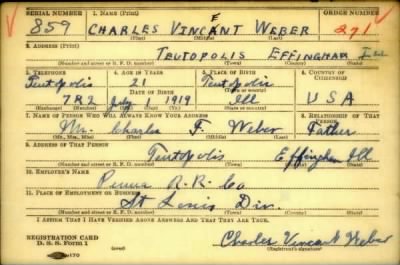 SERIAL NUMBER 1. NAME (Print) ORDER NUMBER
E
859 CHARLES VINCANT WEBER 271
(First) (Middle) (Last)
2. ADDRESS (Print)
TEUTOPOLIS EFFINGHAM ILL.
(Number and street or R. F. D. number) (Town) (County) (State)
3. TELEPHONE 4. AGE IN YEARS 5. PLACE OF BIRTH 6. COUNTRY OF CITIZENSHIP
Teutopolis 21 Teutopolis
DATE OF BIRTH (Town or county)
7R2 July 1919 Ill USA
(Exchange) (Number) (Mo.) (Day) (Yr.) (State or country)
7. NAME OF PERSON WHO WILL ALWAYS KNOW YOUR ADDRESS 8. RELATIONSHIP OF THAT PERSON
Mr. Charles F. Weber Father
(Mr., Mrs., Miss) (First) (Middle) (Last)
9. ADDRESS OF THAT PERSON
Teutopolis Effingham Ill
(Number and street or R. F. D. number) (Town) (County) (State)
10. EMPLOYER'S NAME
Penna R.R. Co
11. PLACE OF EMPLOYMENT OR BUSINESS
St Louis Div.
(Number and street or R. F. D. number) (Town) (County) (State)
I AFFIRM THAT I HAVE VERIFIED ABOVE ANSWERS AND THAT THEY ARE TRUE.
REGISTRATION CARD
D. S. S. Form 1 Charles Vincant Weber
(over) (Registrant's signature)